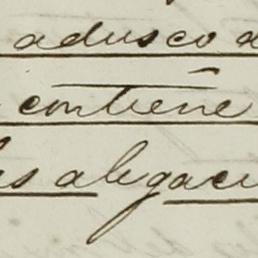 adusco a
contiene
es alegacu